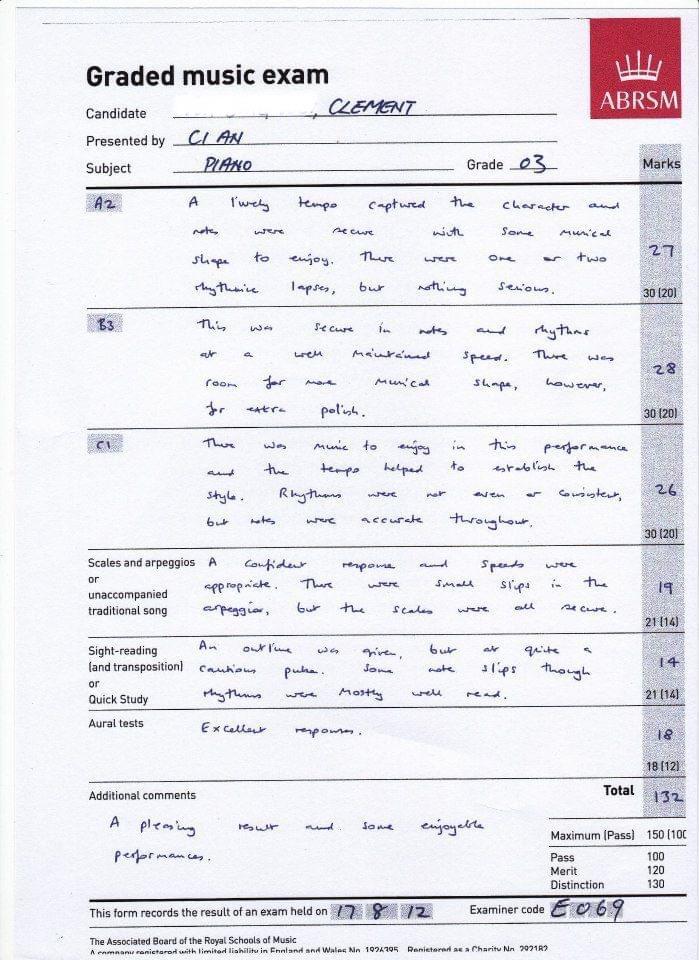 Graded music exam
ABRSM
Candidate , CLEMENT
Presented by CIAN
Subject PIANO Grade 03 Marks
A2 A lively tempo captured the character and
notes were secure with some musical
shape to enjoy. There were one or two
rhythmic lapses, but nothing serious.
27
30 (20)
B3 This was secure in notes and rhythms
at a well maintained speed. There was
room for more musical shape, however,
for extra polish.
28
30 (20)
C1 There was music to enjoy in this performance
and the tempo helped to establish the
style. Rhythms were not even or consistent,
but notes were accurate throughout.
26
30 (20)
Scales and arpeggios
or
unaccompanied
traditional song
A confident response and speeds were
appropriate. There were small slips in the
arpeggios, but the scales were all secure.
19
21 (14)
Sight-reading
(and transposition)
or
Quick Study
An outline was given, but at quite a
cautious pulse. Some note slips though
rhythms were mostly well read.
14
21 (14)
Aural tests
Excellent responses.
18
18 (12)
Additional comments
A pleasing result and some enjoyable
performances.
Total 132
Maximum (Pass) 150 (100
Pass 100
Merit 120
Distinction 130
This form records the result of an exam held on 17 8 12 Examiner code E069
The Associated Board of the Royal Schools of Music
A company registered with limited liability in England and Wales No. 1926395 Registered as a Charity No. 292182